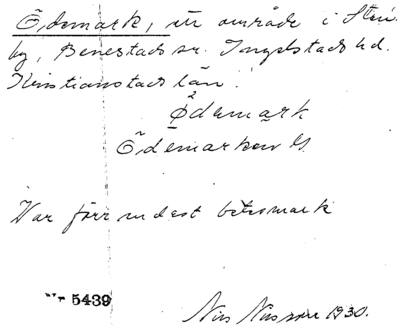 Ödemark, ett område i Sten-
by, Benestads sn. Ingelstads hd.
Kristianstads län.
Ødemark
Ödemarken G.
Var förr endast betesmark
Nr 5439
Nils Nilsson 1930.